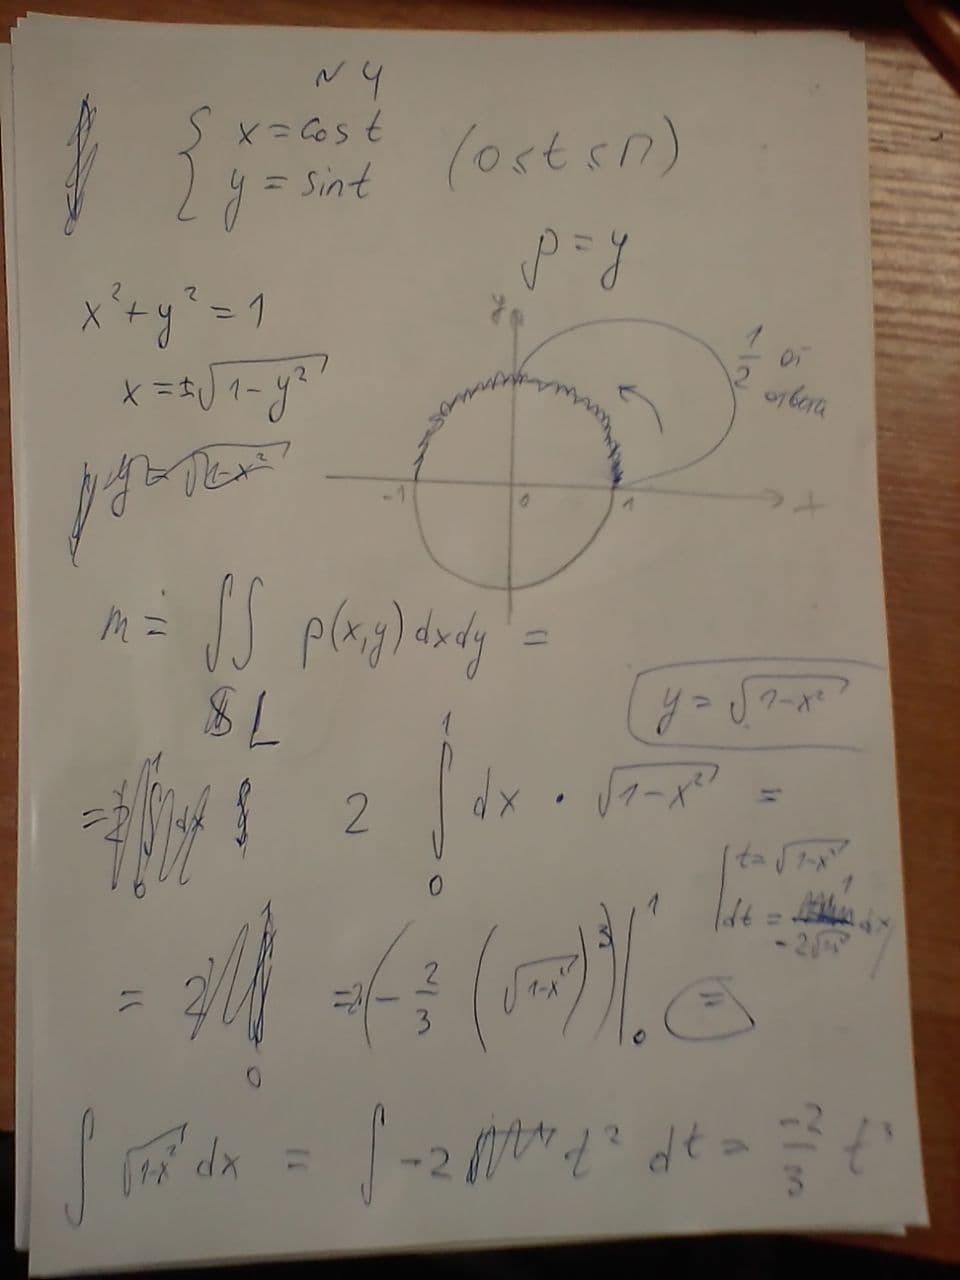 N 4
{ x = cos t
y = sin t
(0 ≤ t ≤ π)
ρ = y
x² + y² = 1
x = ±√(1 - y²)
y = √(1-x²)
y
-1
0
1
x
1/2 от
ответа
m = ∬ ρ(x,y) dxdy =
L
y = √(1-x²)
= 2 ∫₀¹ dx · √(1-x²) =
t = √(1-x²)
dt = 1/(-2√(1-x²)) dx
= 2(-2/3 (√(1-x²))³)|₀¹ =
∫ √(1-x²) dx = ∫ -2 t² dt = -2/3 t³